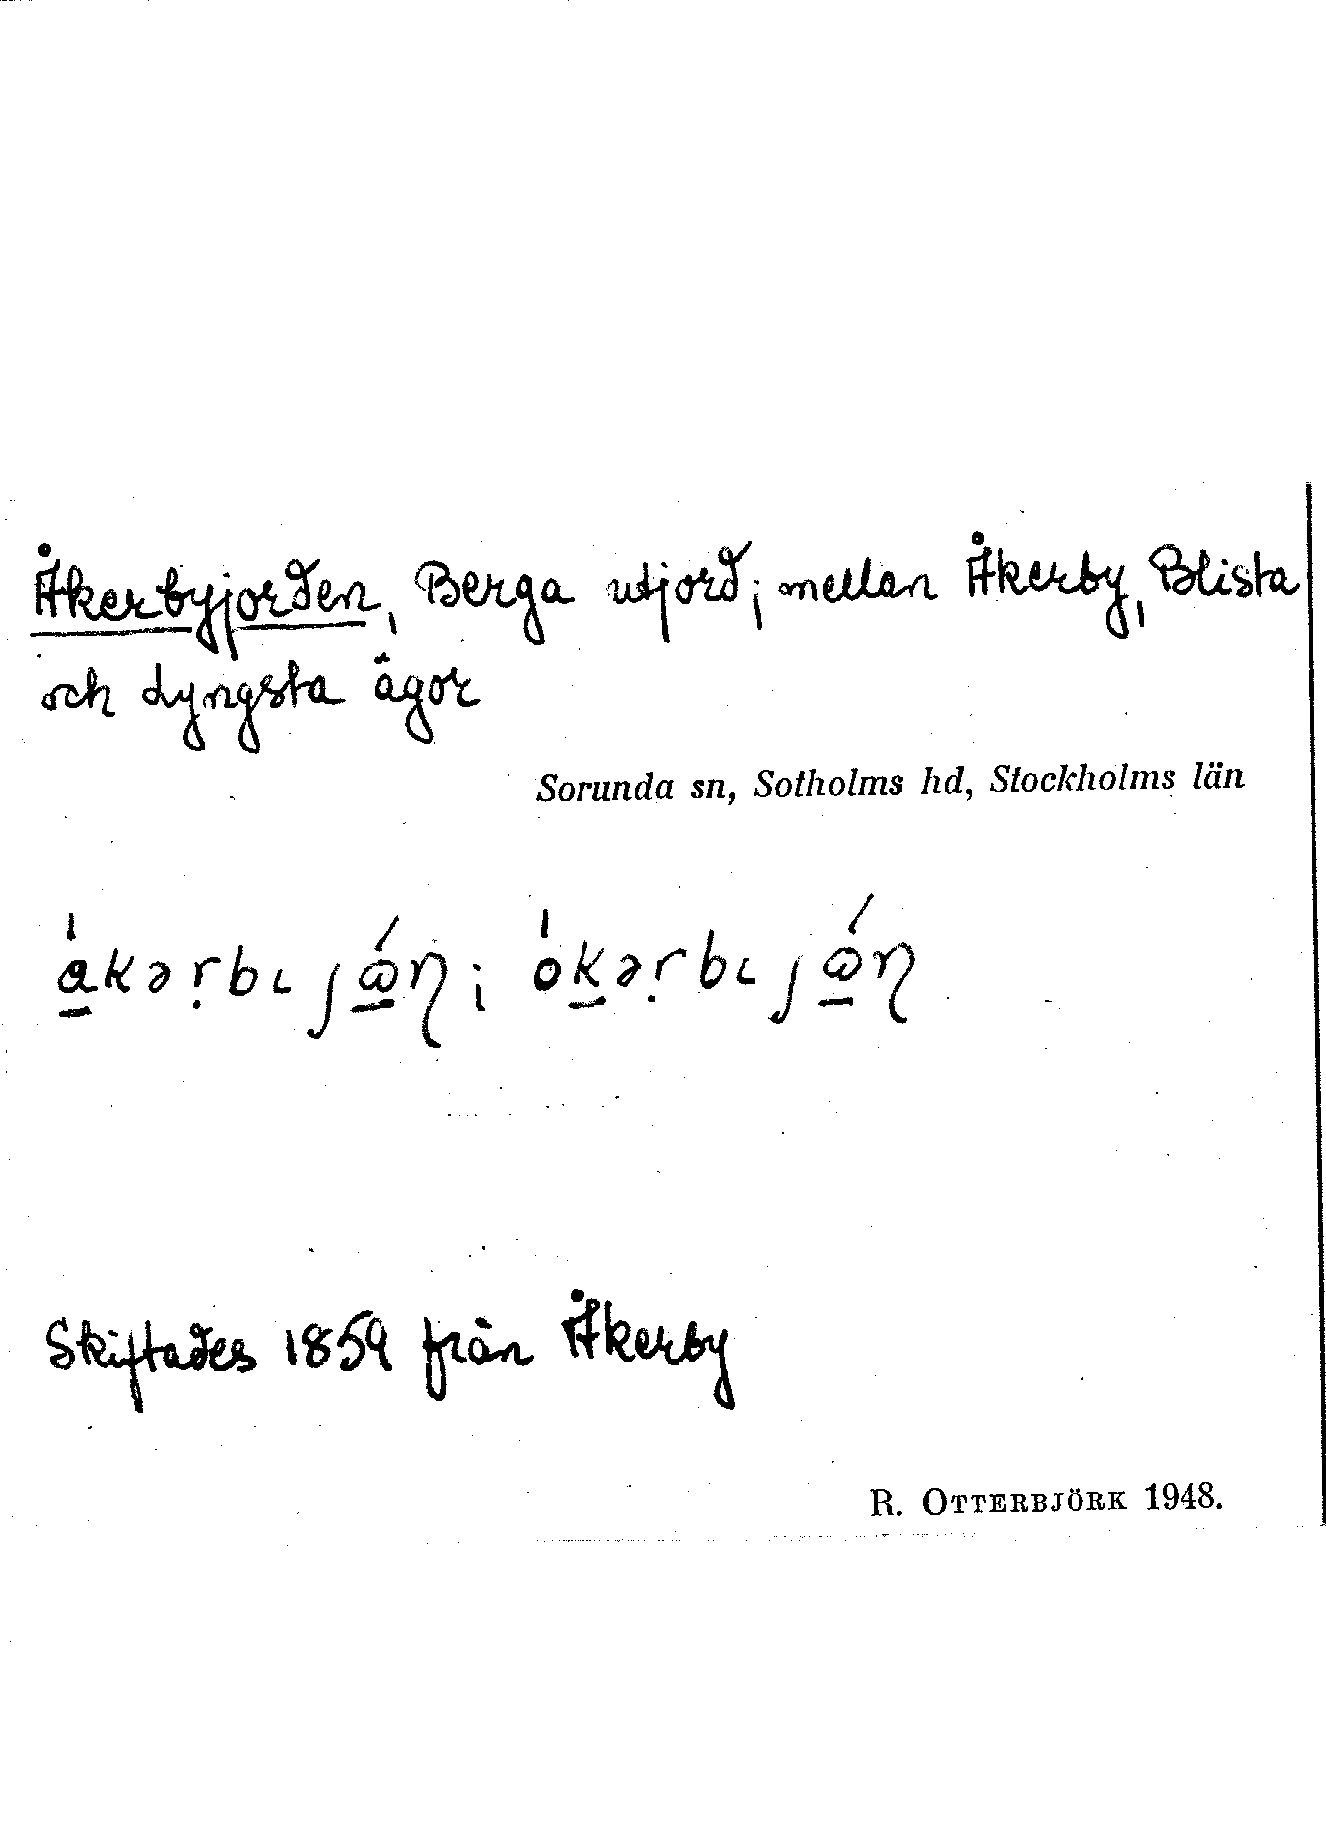 Åkerbyjorden, Berga utjord; mellan Åkerby, Blista
och Lyngsta ägor
Sorunda sn, Sotholms hd, Stockholms län
Skiftades 1859 från Åkerby
R. OTTERBJÖRK 1948.